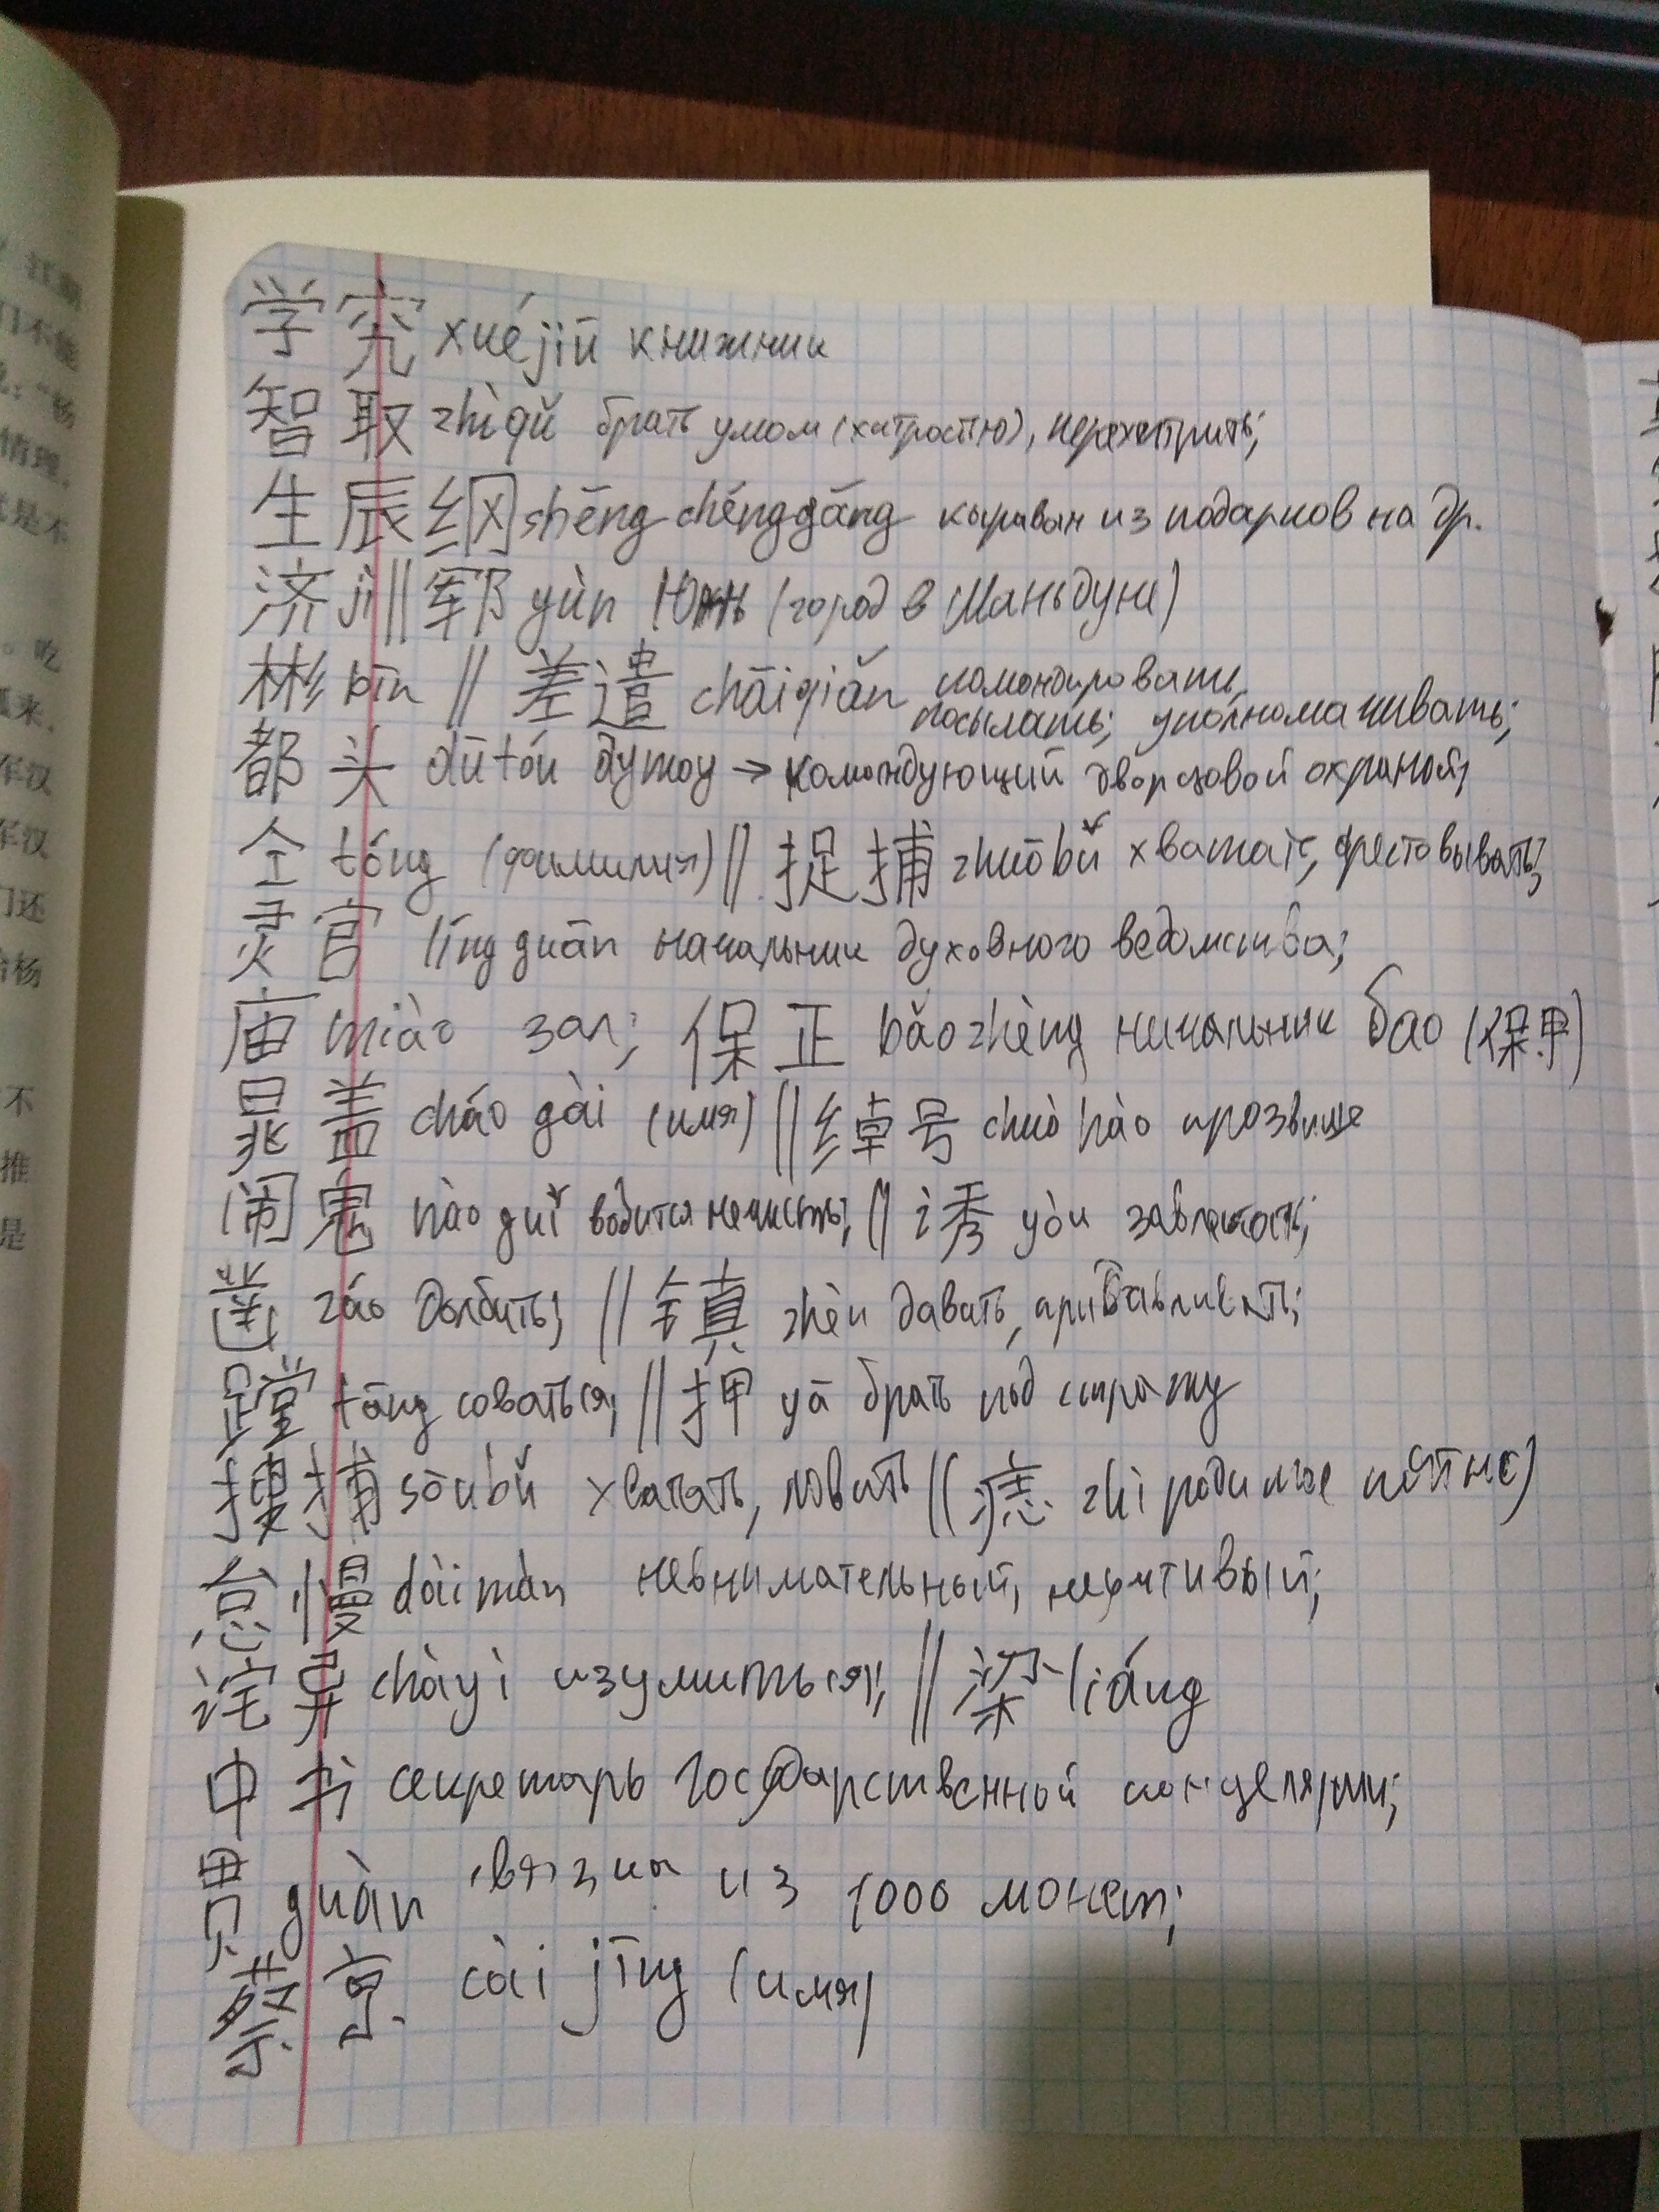 江湖
门不能
："杨
情理，
就是不
。吃
来，
军汉
军汉
门还
杨
不
推
是
学究 xuéjiū книжник
智取 zhìqǔ брать умом (хитростью), перехитрить;
生辰纲 shēng chénggāng караван из подарков на др.
济 jì || 郓 yùn Юнь (город в Шаньдуне)
彬 bīn || 差遣 chāiqiǎn командировать,
посылать; уполномачивать;
都头 dūtóu дутоу → командующий дворцовой охраной;
仝 tóng (фамилия) || 捉捕 zhuōbǔ хватать, арестовывать;
灵官 língguān начальник духовного ведомства;
庙 miào зал; 保正 bǎozhèng начальник бао (保甲)
晁盖 cháo gài (имя) || 绰号 chuòhào прозвище
闹鬼 nàoguǐ водится нечисть; || 诱 yòu завлекать;
凿 záo долбить; || 镇 zhèn давать, придавливать;
蹚 tāng соваться; || 押 yā брать под стражу
搜捕 sōubǔ хватать, ловить || (痣 zhì родимое пятно)
怠慢 dàimàn невнимательный, неучтивый;
诧异 chàyì изумиться; || 梁 liáng
中书 секретарь государственной канцелярии;
贯 guàn связка из 1000 монет;
蔡京 cài jīng (имя)